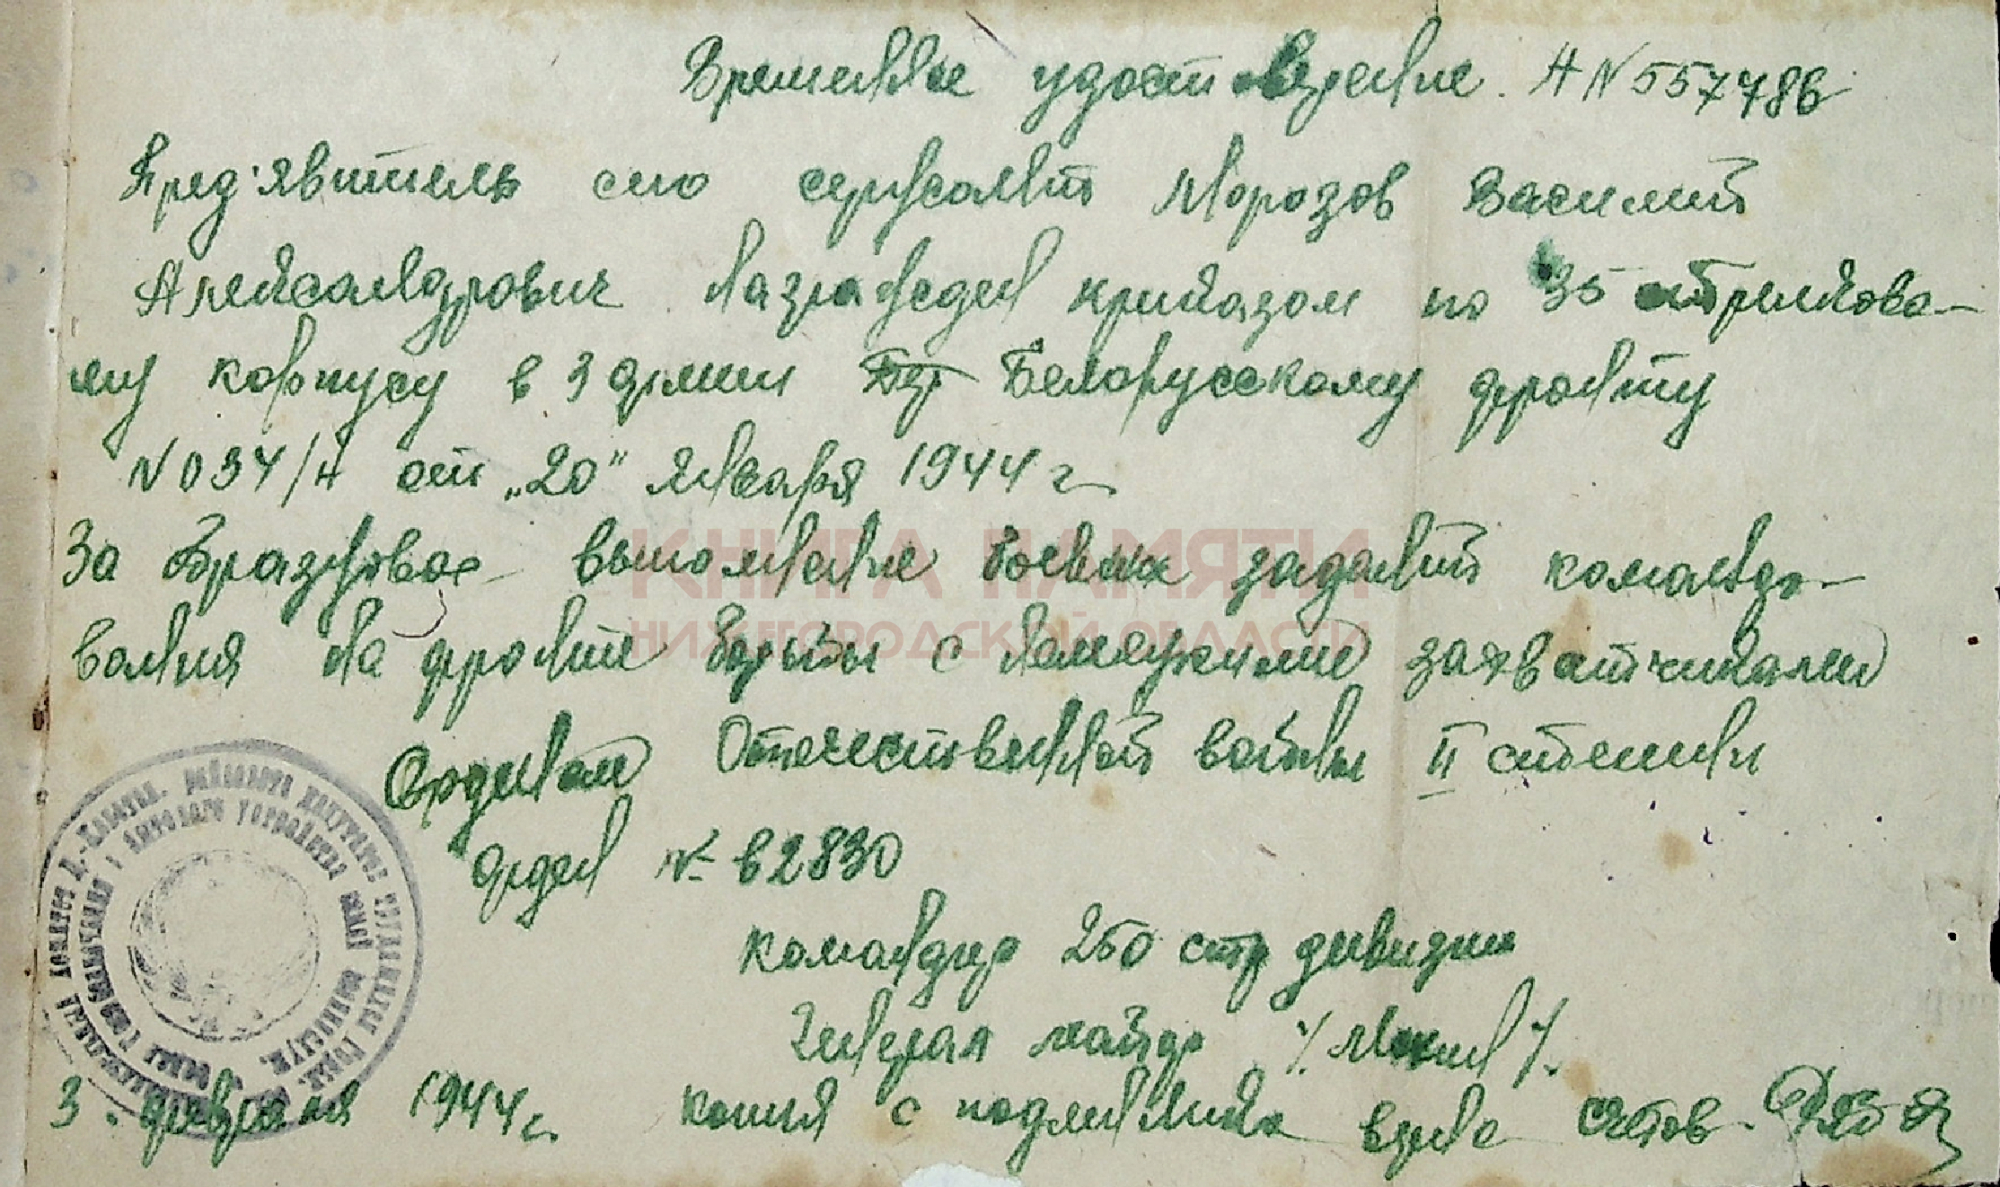 Временное удостоверение. А N 557786
Пред'явитель сего сержант Морозов Василий
Александрович награжден приказом по 35 стрелкова-
му корпусу в 3 армии Белорусскому фронту
N 034/н от „20" января 1944 г
За образцовое выполнение боевых заданий командо-
вания на фронте борьбы с немецкими захватчиками
Орденом Отечественной войны II степени
орден № 62830
командир 250 стр дивизии
Генерал майор /Мохин/.
3. февраля 1944 г. копия с подлинника верна
КНИГА ПАМЯТИ
НИЖЕГОРОДСКОЙ ОБЛАСТИ